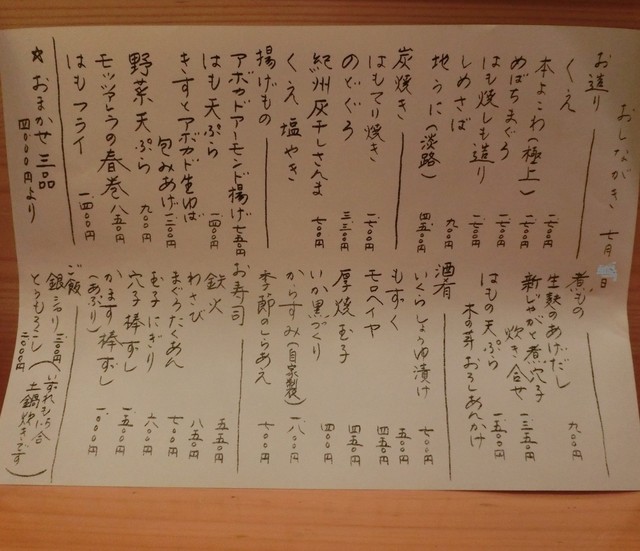 おしながき　七月　日
お造り
くえ
本よこわ(極上)
めばちまぐろ
はも焼しも造り
しめさば　九〇〇円
地うに(淡路)
炭焼き
はもてり焼き
のどぐろ
紀州灰干しさんま　七〇〇円
くえ塩やき
揚げもの
アボカドアーモンド揚げ　七五〇円
はも天ぷら　一四〇〇円
きすとアボカド生ゆば
包みあげ　一三〇〇円
野菜天ぷら　九〇〇円
モッツァレラの春巻　八五〇円
はもフライ　一四〇〇円
☆おまかせ三品
四〇〇〇円より
煮もの
生麩のあげだし　九〇〇円
新じゃがと煮穴子
炊き合せ　一三五〇円
はもの天ぷら
木の芽おろしあんかけ　一五〇〇円
酒肴
いくらしょうゆ漬け　七〇〇円
もずく　五〇〇円
モロヘイヤ　四五〇円
厚焼玉子　四五〇円
いか黒づくり　四〇〇円
からすみ(自家製)　一八〇〇円
季節のごまあえ　七〇〇円
お寿司
鉄火　五五〇円
わさび　八五〇円
まぐろたくあん　七〇〇円
玉子にぎり　六〇〇円
穴子棒ずし　一五〇〇円
かます棒ずし
(あぶり)　一〇〇〇円
ご飯
銀シャリ
とうもろこし
(いずれも一合
土鍋炊きです)